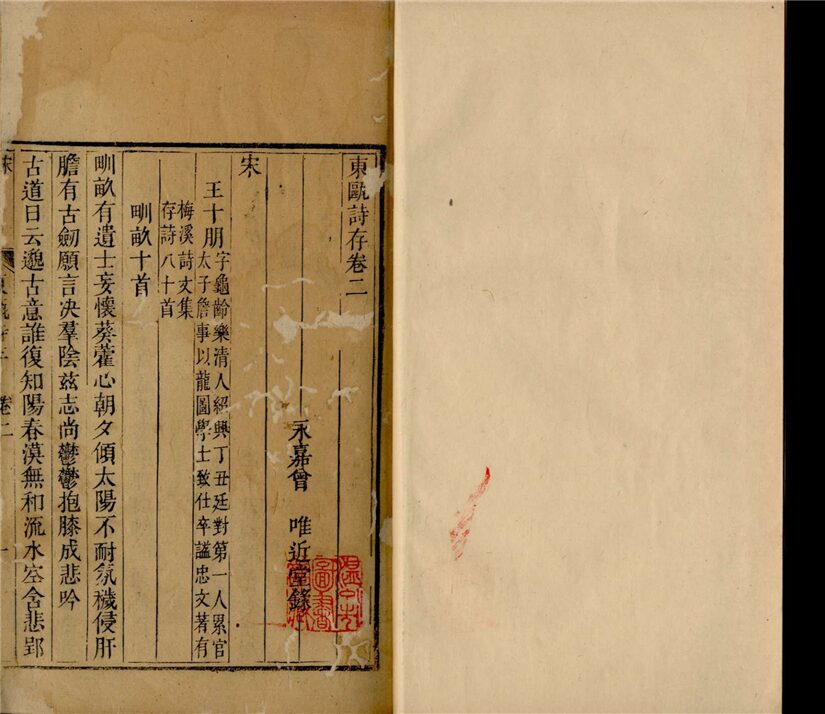 東甌詩存卷二
永嘉曾 唯近堂錄
宋
王十朋字龜齡樂清人紹興丁丑廷對第一人累官
太子詹事以龍圖學士致仕卒諡忠文著有
梅溪詩文集
存詩八十首
甽畝十首
甽畝有遺士妄懷葵藿心朝夕傾太陽不耐氛穢侵肝
膽有古劒願言决羣陰兹志尚鬱鬱抱膝成悲吟
古道日云邈古意誰復知陽春漠無和流水空含悲郢
宋
卷二
一